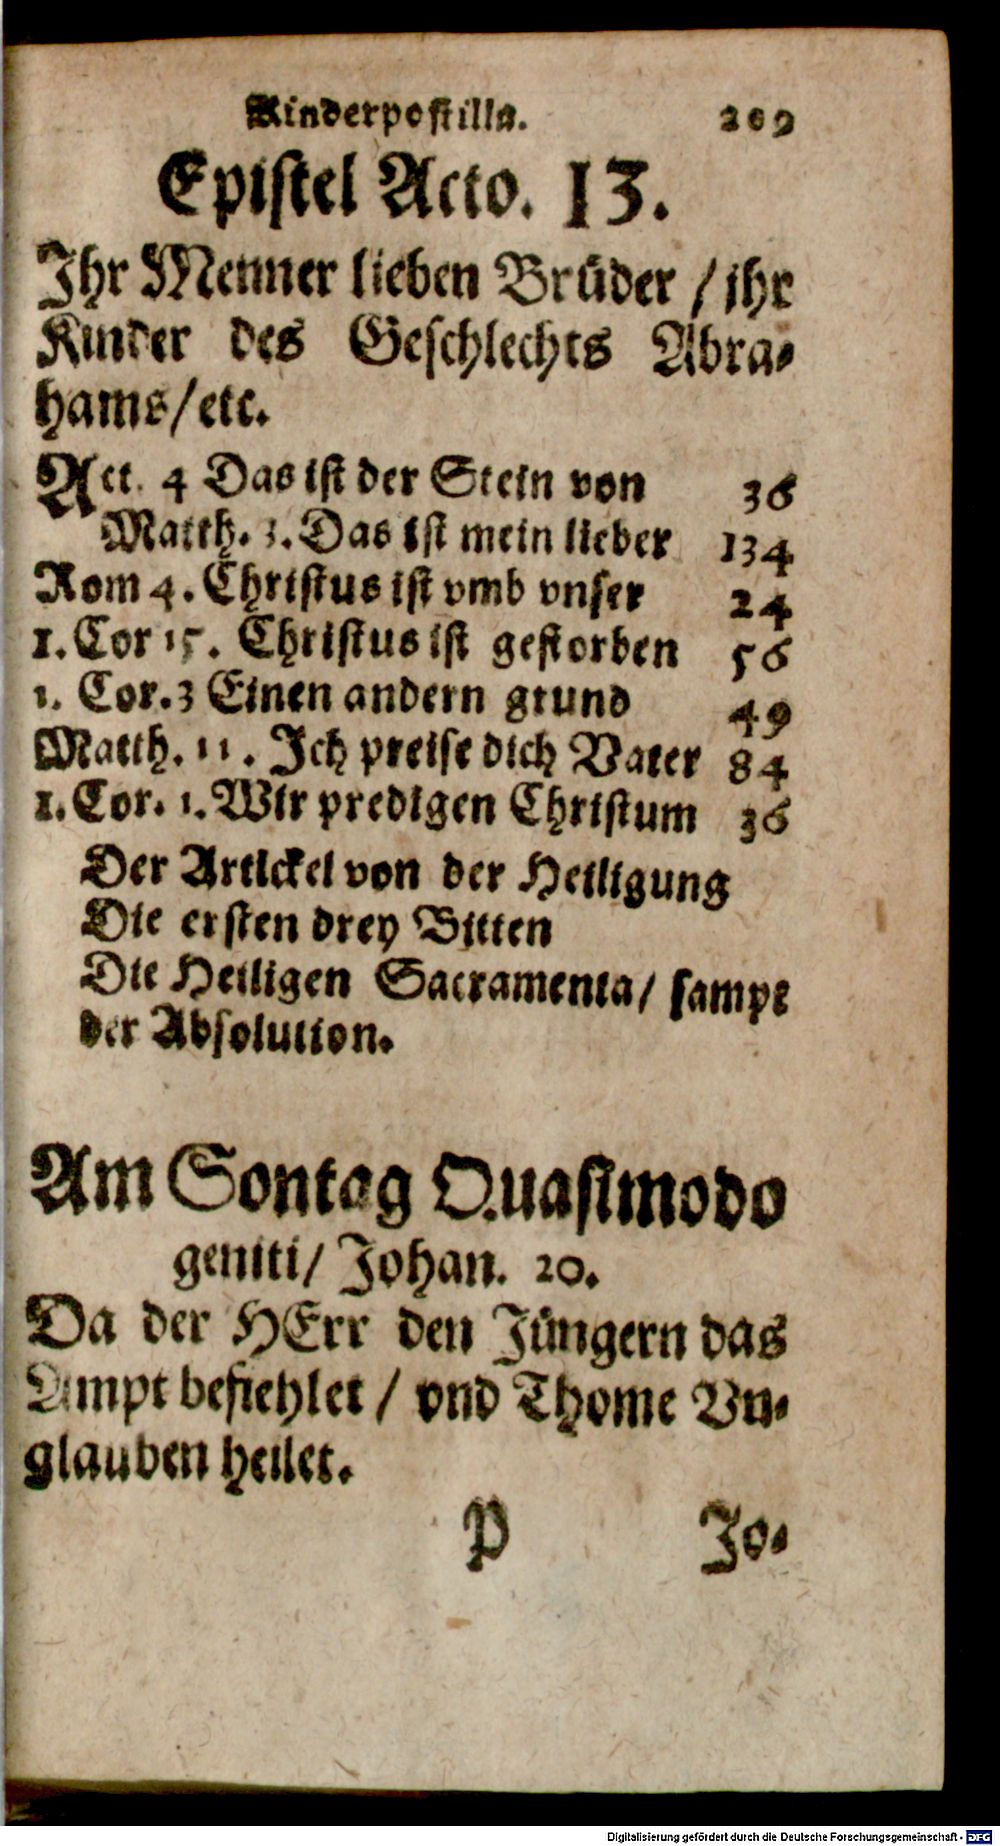 Kinderpostilla. 209
Epistel Acto. 13.
Ihr Menner lieben Brüder / ihr
Kinder des Geschlechts Abra-
hams/etc.
Act. 4 Das ist der Stein von 36
Matth. 3. Das ist mein lieber 134
Rom 4. Christus ist vmb vnser 24
1. Cor 15. Christus ist gestorben 56
1. Cor. 3 Einen andern grund 49
Matth. 11. Ich preise dich Vater 84
1. Cor. 1. Wir predigen Christum 36
Der Artickel von der Heiligung
Die ersten drey Bitten
Die Heiligen Sacramenta/ sampt
der Absolution.
Am Sontag Quasimodo
geniti/ Johan. 20.
Da der HErr den Jüngern das
Ampt befiehlet / vnd Thome Vn-
glauben heilet.
P Jo-
Digitalisierung gefördert durch die Deutsche Forschungsgemeinschaft - DFG